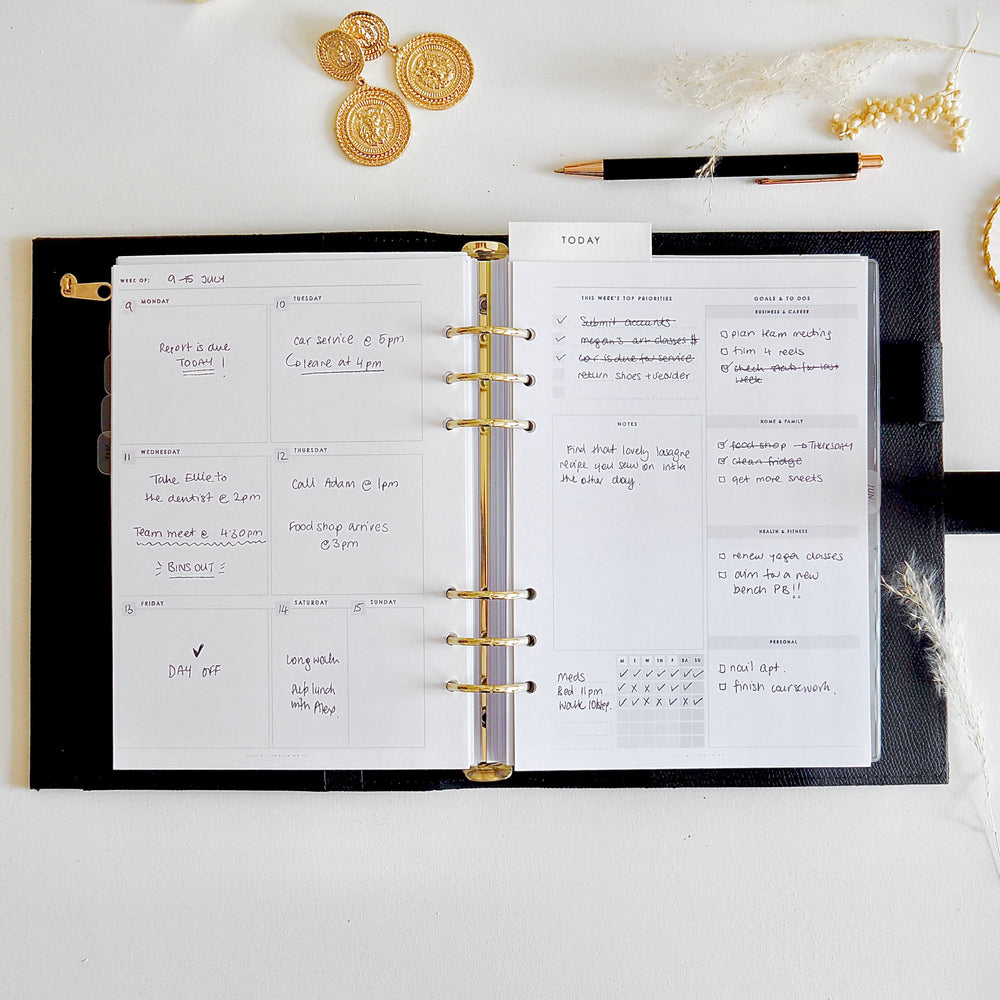 WEEK OF: 9-15 JULY
9 MONDAY
Report is due
TODAY!
10 TUESDAY
car service @ 5pm
(o leave at 4pm
11 WEDNESDAY
Take Ellie to
the dentist @ 2pm
Team meet @ 4:30pm
BINS OUT
12 THURSDAY
Call Adam @ 1pm
Food shop arrives
@ 3pm
13 FRIDAY
DAY OFF
14 SATURDAY
Long walk
Pub lunch
with Alex.
15 SUNDAY
TODAY
THIS WEEK'S TOP PRIORITIES
Submit accounts
megan's art classes $
car is due for service
return shoes + reorder
NOTES
Find that lovely lasagne
recipe you saw on insta
the other day.
M T W T F SA SU
Meds
Bed 11pm
Walk 10k
GOALS & TO DOS
BUSINESS & CAREER
plan team meeting
film 4 reels
check stats for last
week
HOME & FAMILY
food shop → THURSDAY
clean fridge
get more sheets
HEALTH & FITNESS
renew yoga classes
aim for a new
bench PB!!
PERSONAL
nail apt.
finish coursework.
JUN